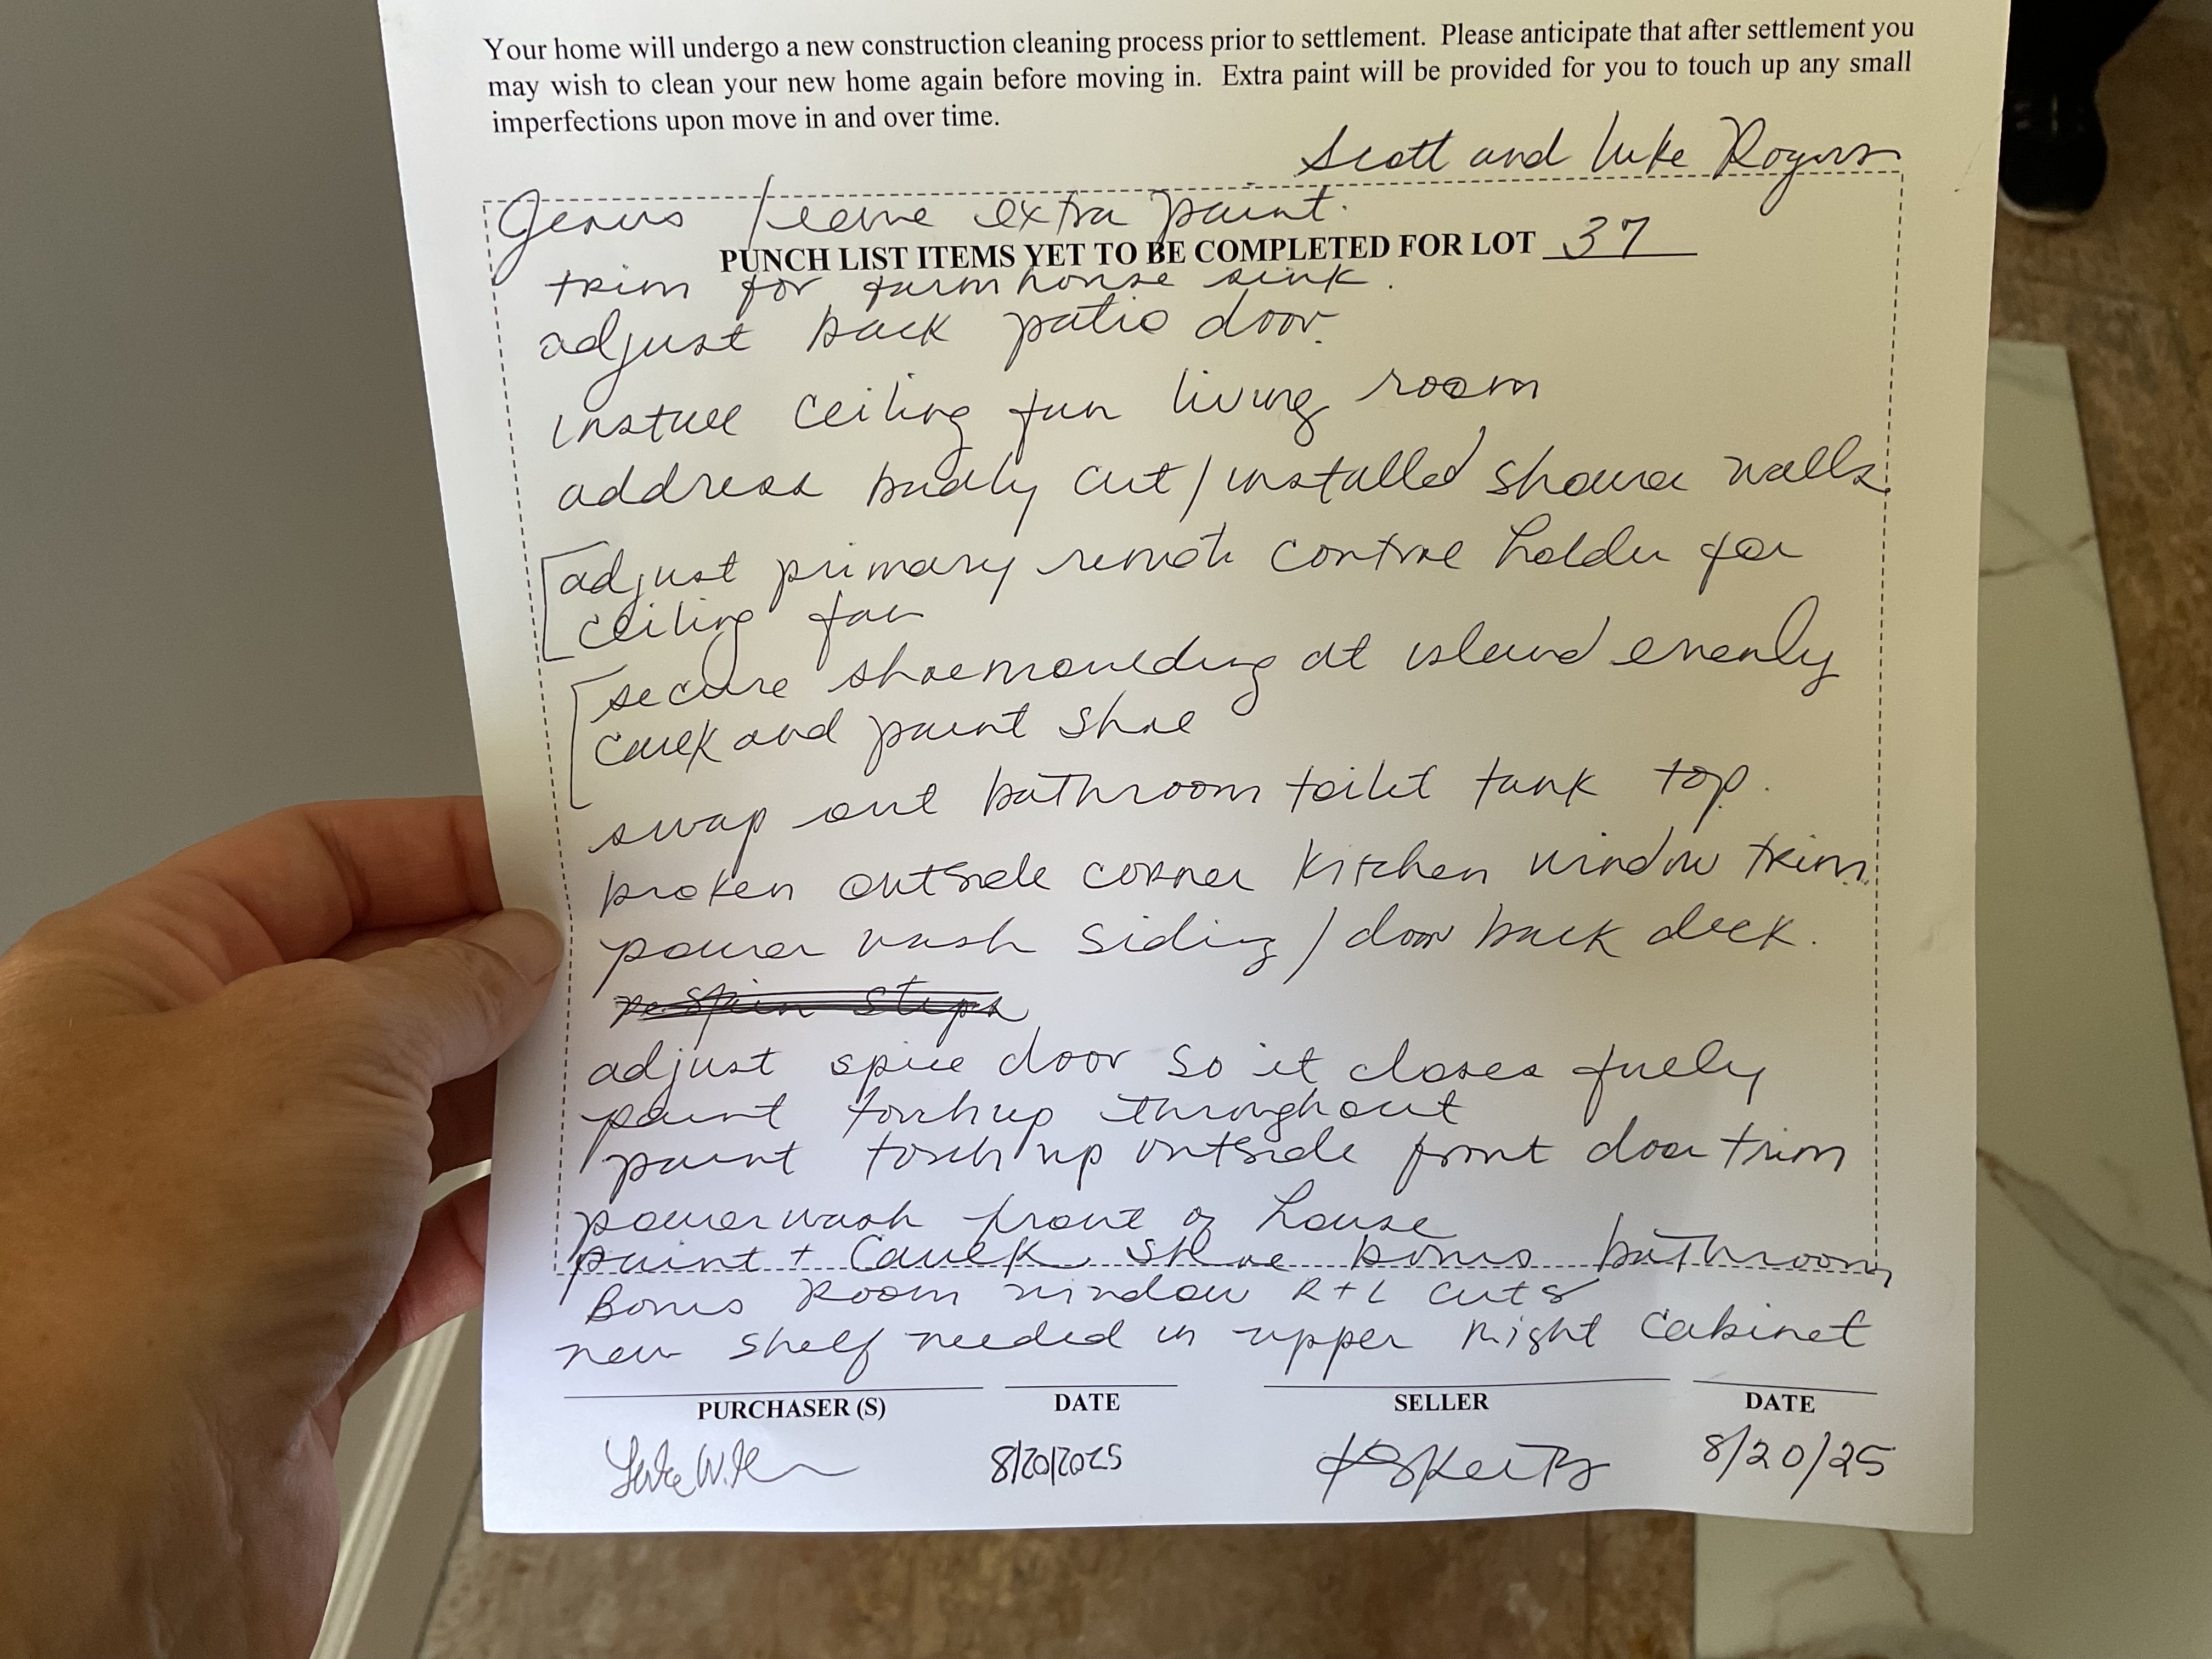 Your home will undergo a new construction cleaning process prior to settlement. Please anticipate that after settlement you
may wish to clean your new home again before moving in. Extra paint will be provided for you to touch up any small
imperfections upon move in and over time.
Scott and Luke Rogers
Jesus leave extra paint.
PUNCH LIST ITEMS YET TO BE COMPLETED FOR LOT 37
trim for farmhouse sink.
adjust back patio door.
install ceiling fan living room
address badly cut/installed shower walls
adjust primary remote control holder for
ceiling fan
secure shoemoulding at island evenly
caulk and paint shoe
swap out bathroom toilet tank top.
broken outside corner kitchen window trim.
power wash siding/door back deck.
steps
adjust spice door so it closes fully
paint touchup throughout
paint touch up outside front door trim
powerwash front of house
paint + caulk shoe bonus bathroom
Bonus Room window R+L cuts
new shelf needed in upper right cabinet
PURCHASER (S) DATE SELLER DATE
8/20/2025 8/20/25